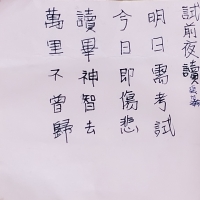 試前夜讀
明日需考試
今日即傷悲
讀畢神智去
萬里不曾歸